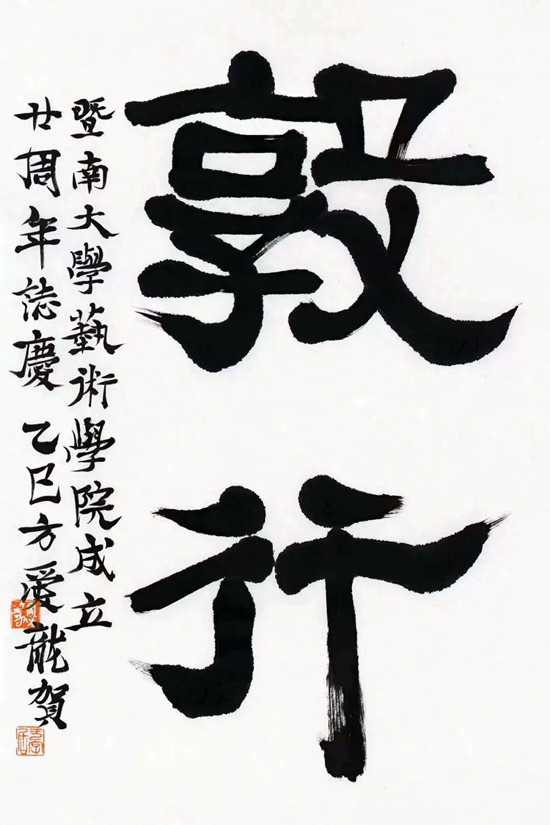 敦行
暨南大學藝術學院成立
廿周年誌慶 乙巳方爱龍賀